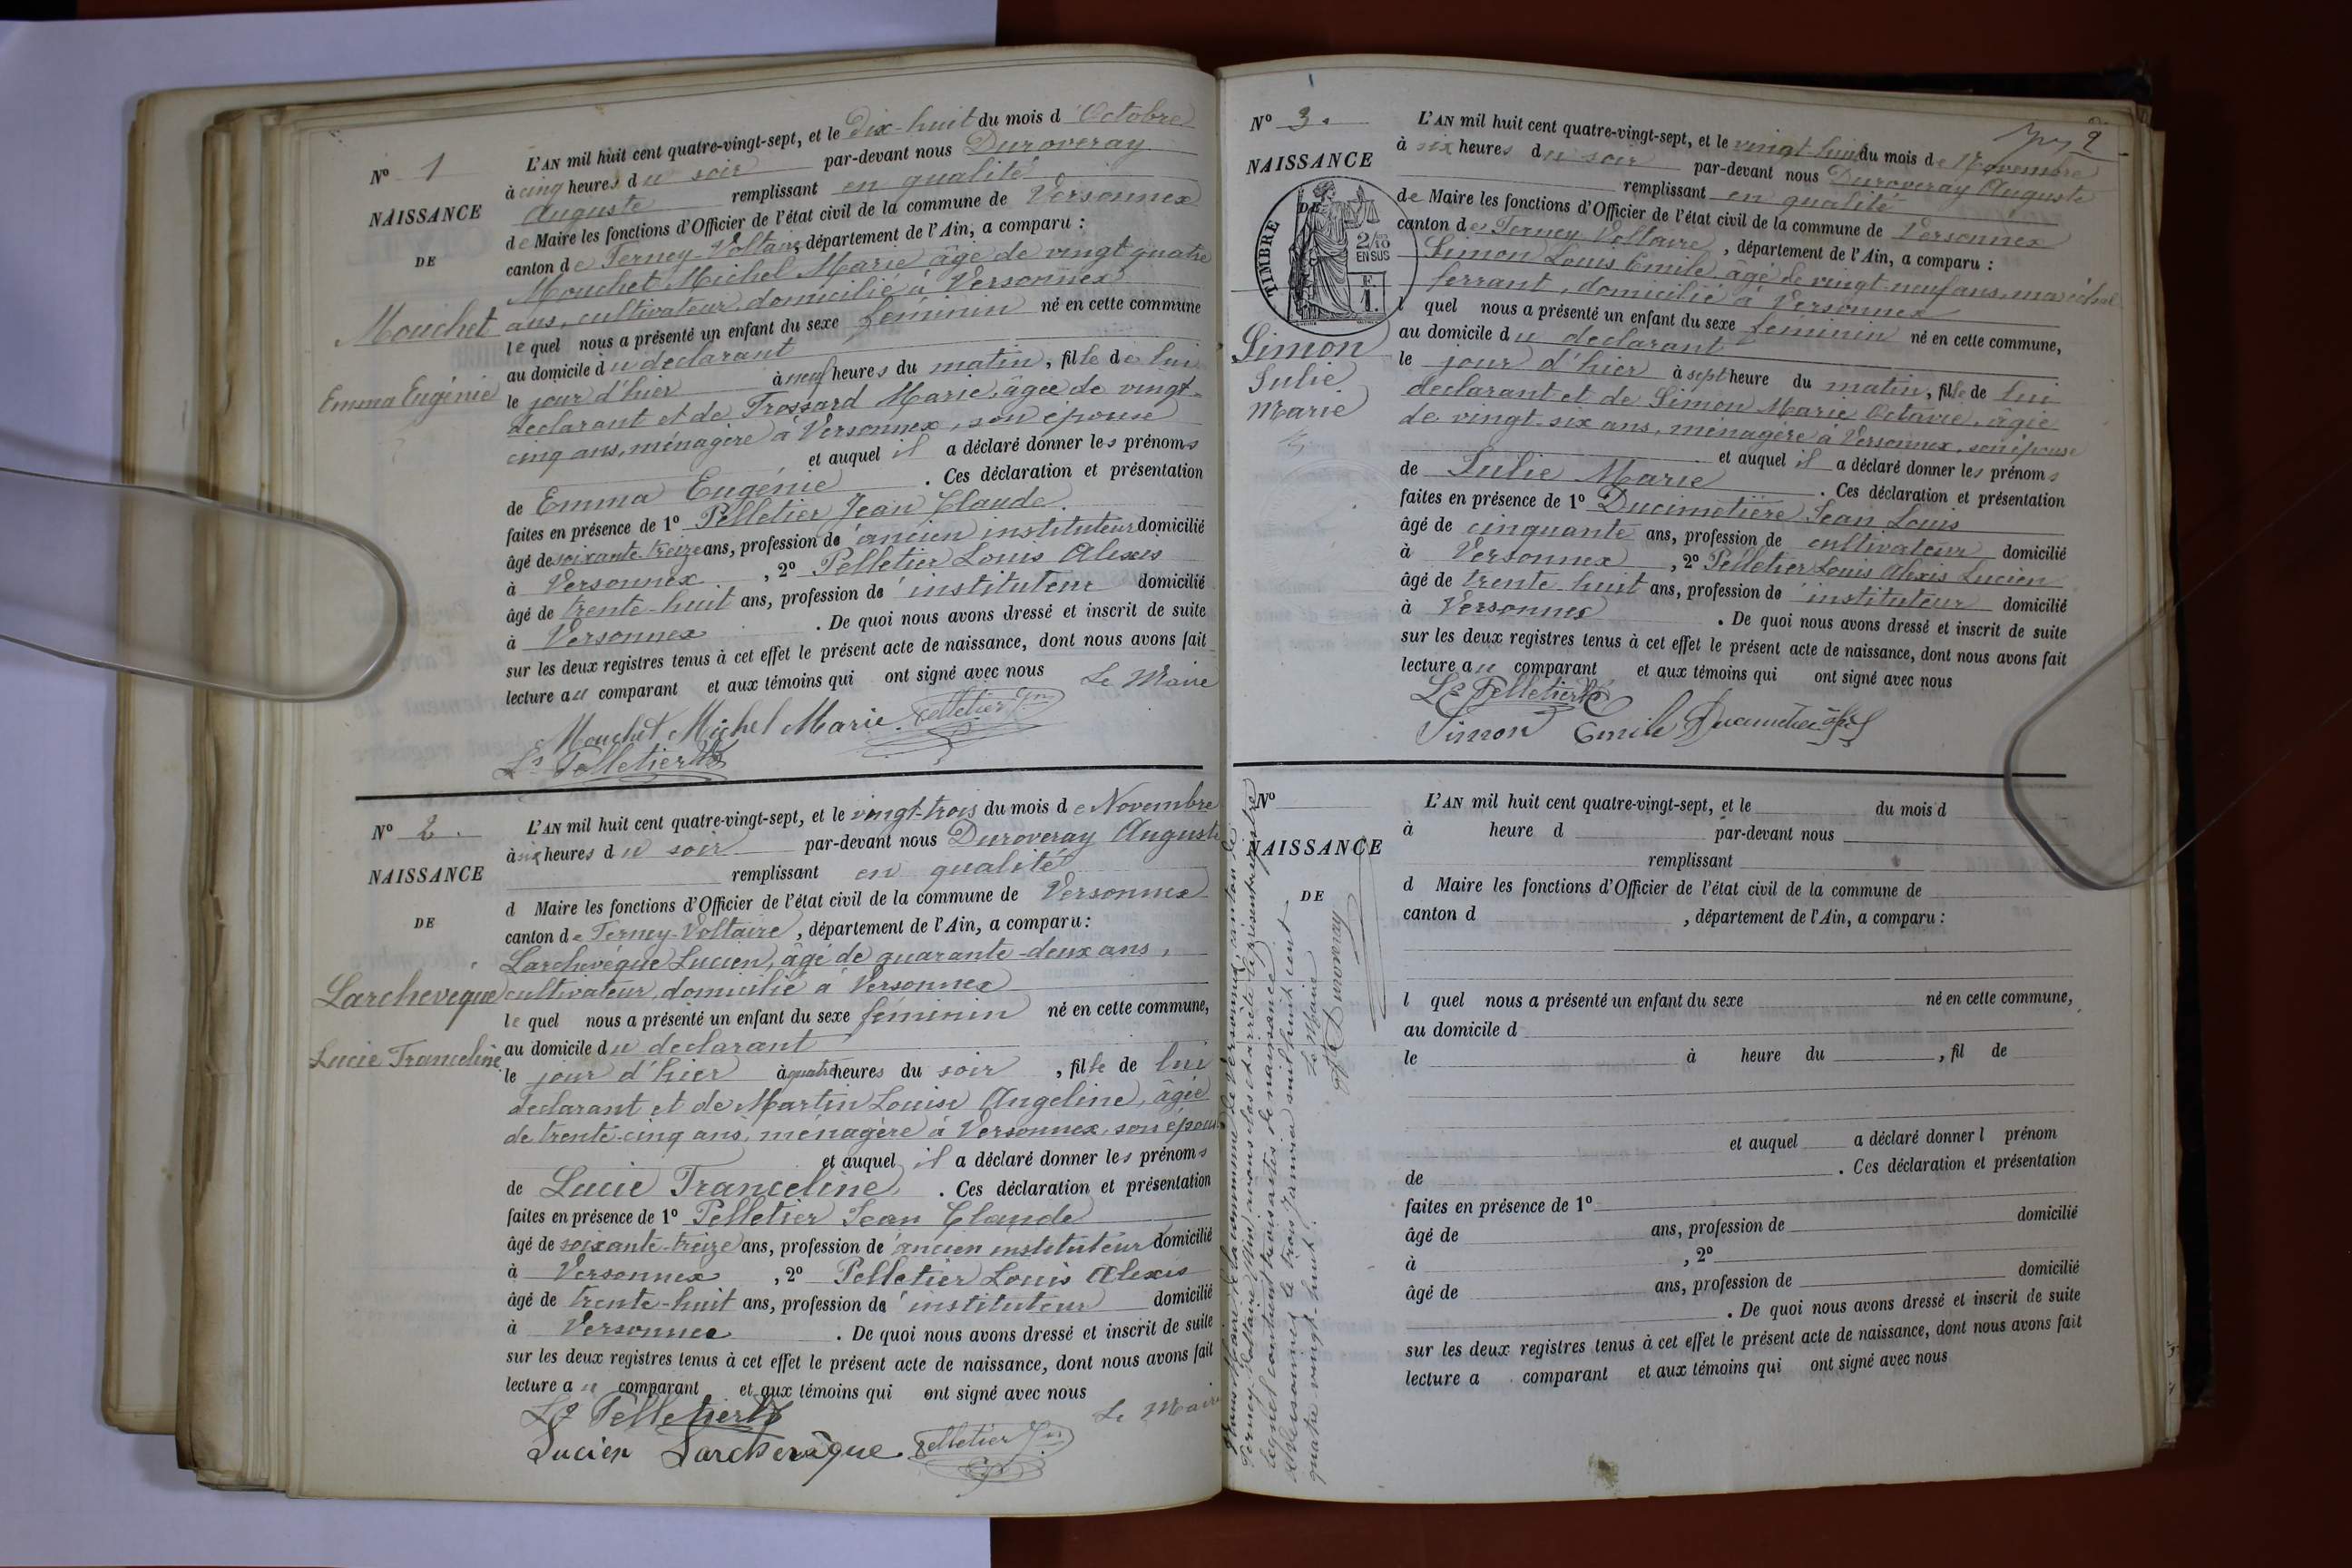 Nº 1
NAISSANCE
DE
Mouchet
Emma Eugénie
L'AN mil huit cent quatre-vingt-sept, et le Dix-huit du mois d'Octobre
à cinq heures du soir par-devant nous Duroveray
Auguste remplissant en qualité
de Maire les fonctions d'Officier de l'état civil de la commune de Versonnex
canton de Ferney-Voltaire, département de l'Ain, a comparu :
Mouchet Michel Marie âgé de vingt quatre
ans, cultivateur, domicilié à Versonnex
lequel nous a présenté un enfant du sexe féminin né en cette commune
au domicile du declarant
le jour d'hier à neuf heures du matin, fille de lui
declarant et de Trossard Marie, âgée de vingt-
cinq ans, ménagère à Versonnex, son epouse
et auquel il a déclaré donner les prénoms
de Emma Eugénie. Ces déclaration et présentation
faites en présence de 1º Pelletier Jean Claude
âgé de soixante-treize ans, profession d'ancien instituteur domicilié
à Versonnex, 2º Pelletier Louis Alexis
âgé de trente-huit ans, profession d'instituteur domicilié
à Versonnex. De quoi nous avons dressé et inscrit de suite
sur les deux registres tenus à cet effet le présent acte de naissance, dont nous avons fait
lecture au comparant et aux témoins qui ont signé avec nous
Le Maire
Mouchet Michel Marie Pelletier Jn
Ls Pelletier
Nº 2.
NAISSANCE
DE
Larcheveque
Lucie Franceline
L'AN mil huit cent quatre-vingt-sept, et le vingt-trois du mois de Novembre
à six heures du soir par-devant nous Duroveray Auguste
remplissant en qualité
d Maire les fonctions d'Officier de l'état civil de la commune de Versonnex
canton de Ferney-Voltaire, département de l'Ain, a comparu :
Larchevêque Lucien, âgé de quarante-deux ans,
cultivateur, domicilié à Versonnex
lequel nous a présenté un enfant du sexe féminin né en cette commune,
au domicile du declarant
le jour d'hier à quatre heures du soir, fille de lui
declarant et de Martin Louise Angeline, âgée
de trente-cinq ans, ménagère à Versonnex, son épouse
et auquel il a déclaré donner les prénoms
de Lucie Franceline. Ces déclaration et présentation
faites en présence de 1º Pelletier Jean Claude
âgé de soixante-treize ans, profession d'ancien instituteur domicilié
à Versonnex, 2º Pelletier Louis Alexis
âgé de trente-huit ans, profession d'instituteur domicilié
à Versonnex. De quoi nous avons dressé et inscrit de suite
sur les deux registres tenus à cet effet le présent acte de naissance, dont nous avons fait
lecture au comparant et aux témoins qui ont signé avec nous
Ls Pelletier Le Maire
Lucien Larchevêque Pelletier Jn
2
Nº 3.
NAISSANCE
DE
TIMBRE
2/10
EN SUS
Simon
Julie
Marie
L'AN mil huit cent quatre-vingt-sept, et le vingt-huit du mois de Novembre
à six heures du soir par-devant nous Duroveray Auguste
remplissant en qualité
de Maire les fonctions d'Officier de l'état civil de la commune de Versonnex
canton de Ferney Voltaire, département de l'Ain, a comparu :
Simon Louis Emile, âgé de vingt-neuf ans, maréchal
ferrant, domicilié à Versonnex
l quel nous a présenté un enfant du sexe féminin né en cette commune,
au domicile du declarant
le jour d'hier à sept heure du matin, fille de lui
declarant et de Simon Marie Octavie, âgée
de vingt-six ans, ménagère à Versonnex, son épouse
et auquel il a déclaré donner les prénoms
de Julie Marie. Ces déclaration et présentation
faites en présence de 1º Ducimetière Jean Louis
âgé de cinquante ans, profession de cultivateur domicilié
à Versonnex, 2º Pelletier Louis Alexis Lucien
âgé de trente-huit ans, profession d'instituteur domicilié
à Versonnex. De quoi nous avons dressé et inscrit de suite
sur les deux registres tenus à cet effet le présent acte de naissance, dont nous avons fait
lecture au comparant et aux témoins qui ont signé avec nous
Ls Pelletier
Simon Emile
Nº
NAISSANCE
DE
L'AN mil huit cent quatre-vingt-sept, et le du mois d
à heure d par-devant nous
remplissant
d Maire les fonctions d'Officier de l'état civil de la commune de
canton d , département de l'Ain, a comparu :
l quel nous a présenté un enfant du sexe né en cette commune,
au domicile d
le à heure du , fil de
et auquel a déclaré donner l prénom
de . Ces déclaration et présentation
faites en présence de 1º
âgé de ans, profession de domicilié
à , 2º
âgé de ans, profession de domicilié
. De quoi nous avons dressé et inscrit de suite
sur les deux registres tenus à cet effet le présent acte de naissance, dont nous avons fait
lecture a comparant et aux témoins qui ont signé avec nous
Nous Maire de la commune de Versonnex, canton de
Ferney-Voltaire (Ain) avons clos et arrêté le présent registre
lequel contient trois actes de naissance
A Versonnex le trois Janvier mil huit cent
quatre-vingt-huit.
Le Maire
Duroveray